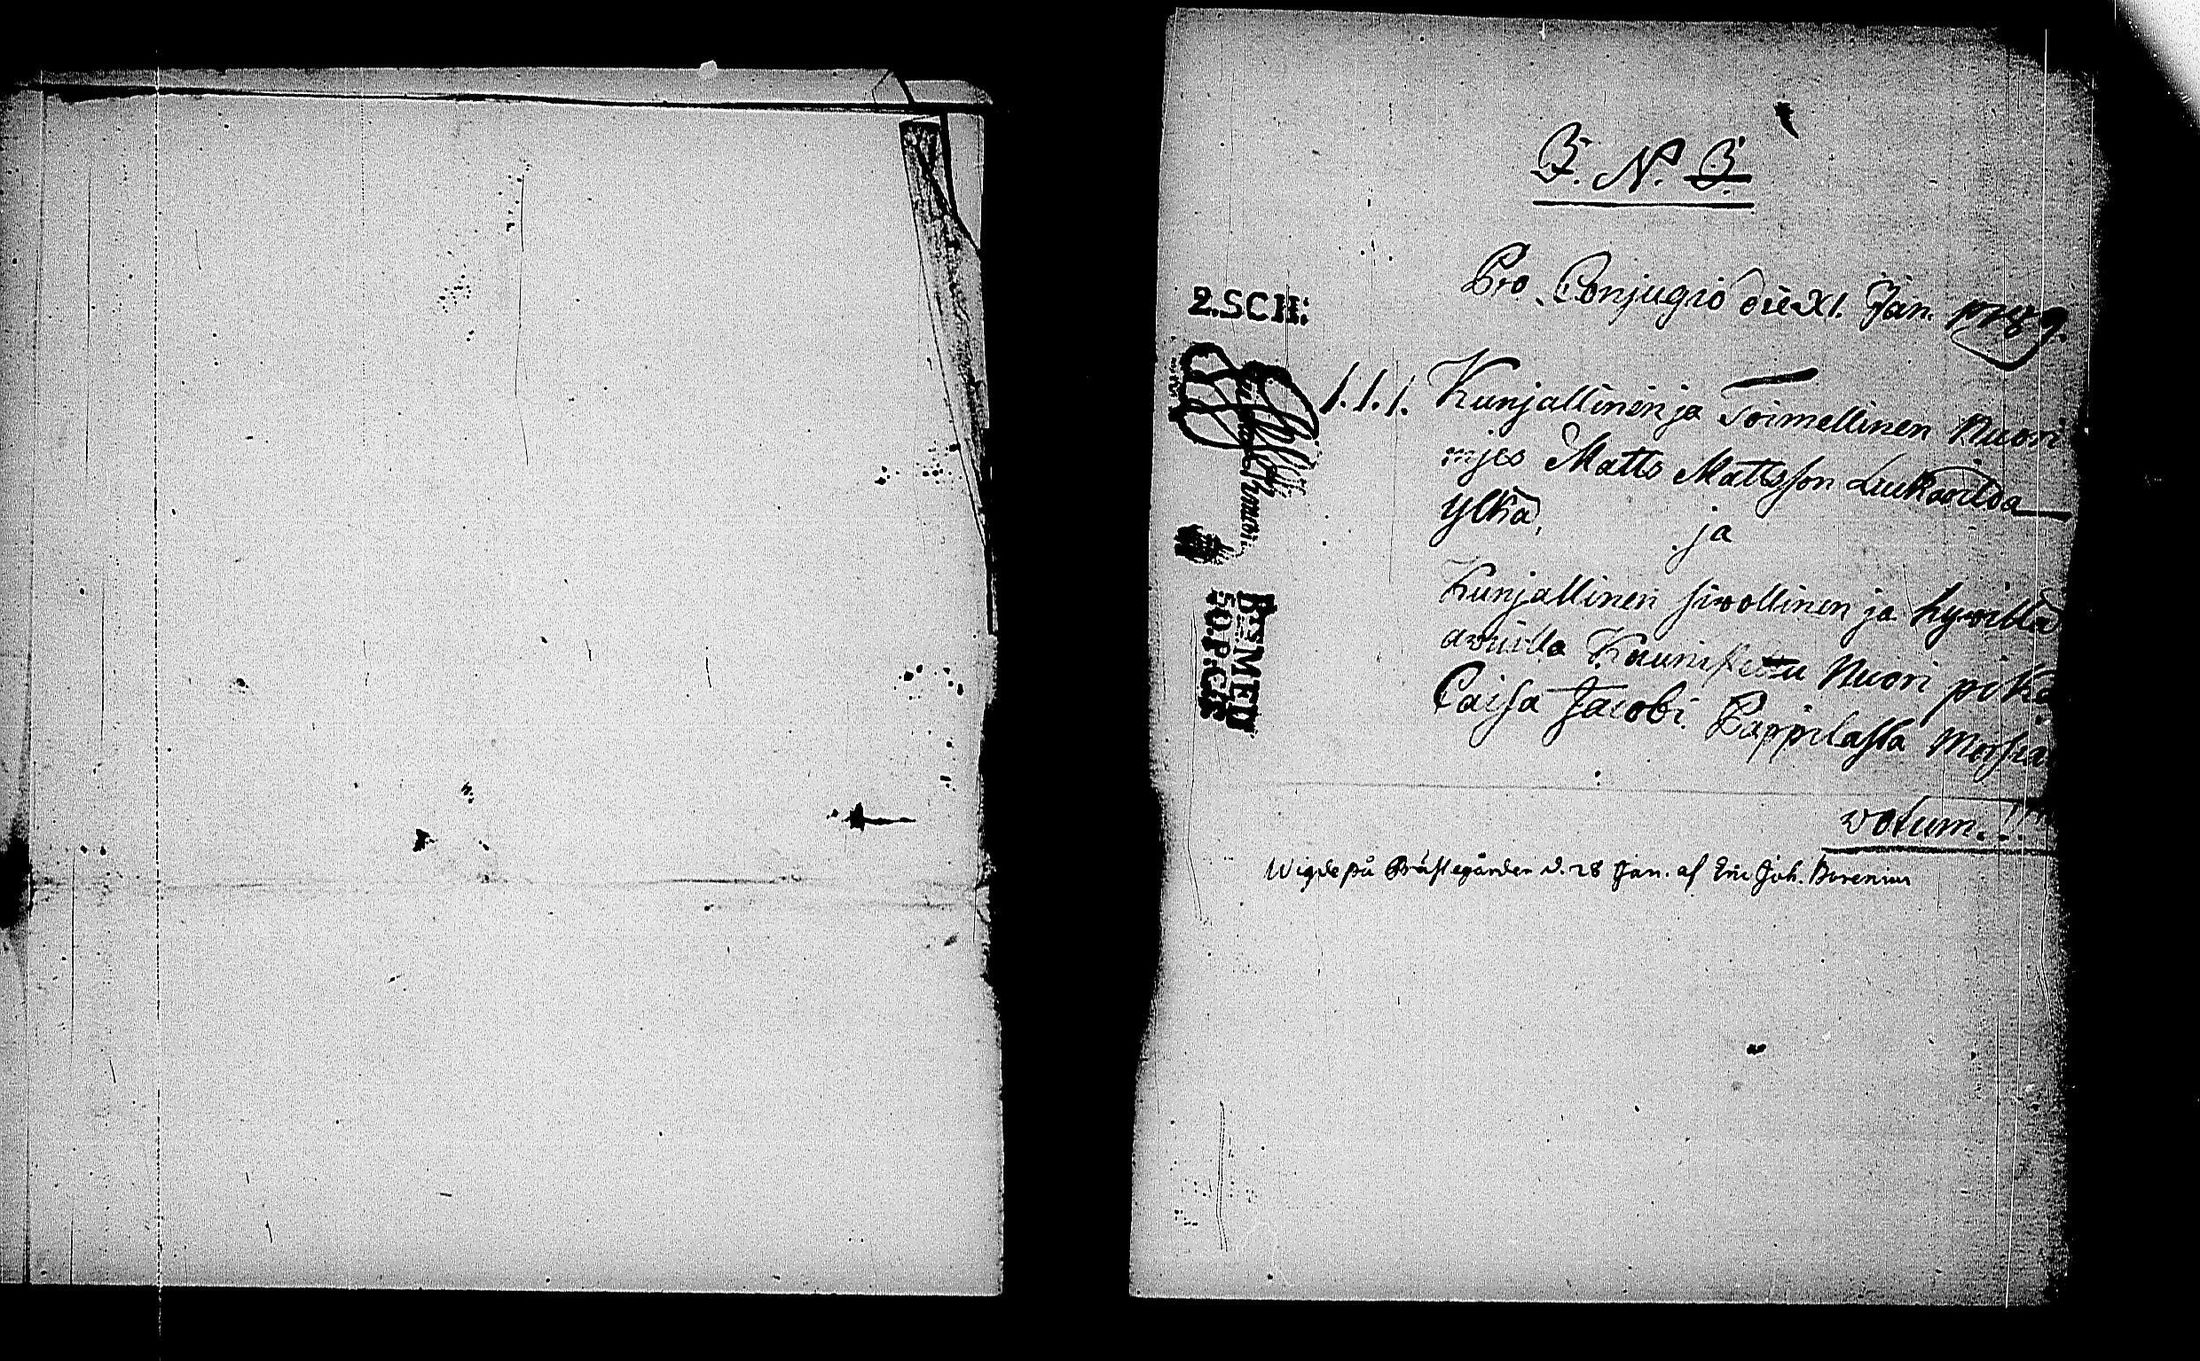 F. N. J.
Pro Conjugio die XI. Jan. 1789.
2.SCH:
1.1.1. Kunjallinen ja Toimellinen Nuori
mies Matts Mattsson Luukarilda
ylkä,
ja
Kunjallinen siwollinen ja hywillä
awuilla Kaunistettu Nuori pika
Caisa Jacobi Pappilasta Morsia
BES.MED
50.P:CT
votum.
Wigde på Prästegården d. 28 Jan. af Eric Joh. Borenius